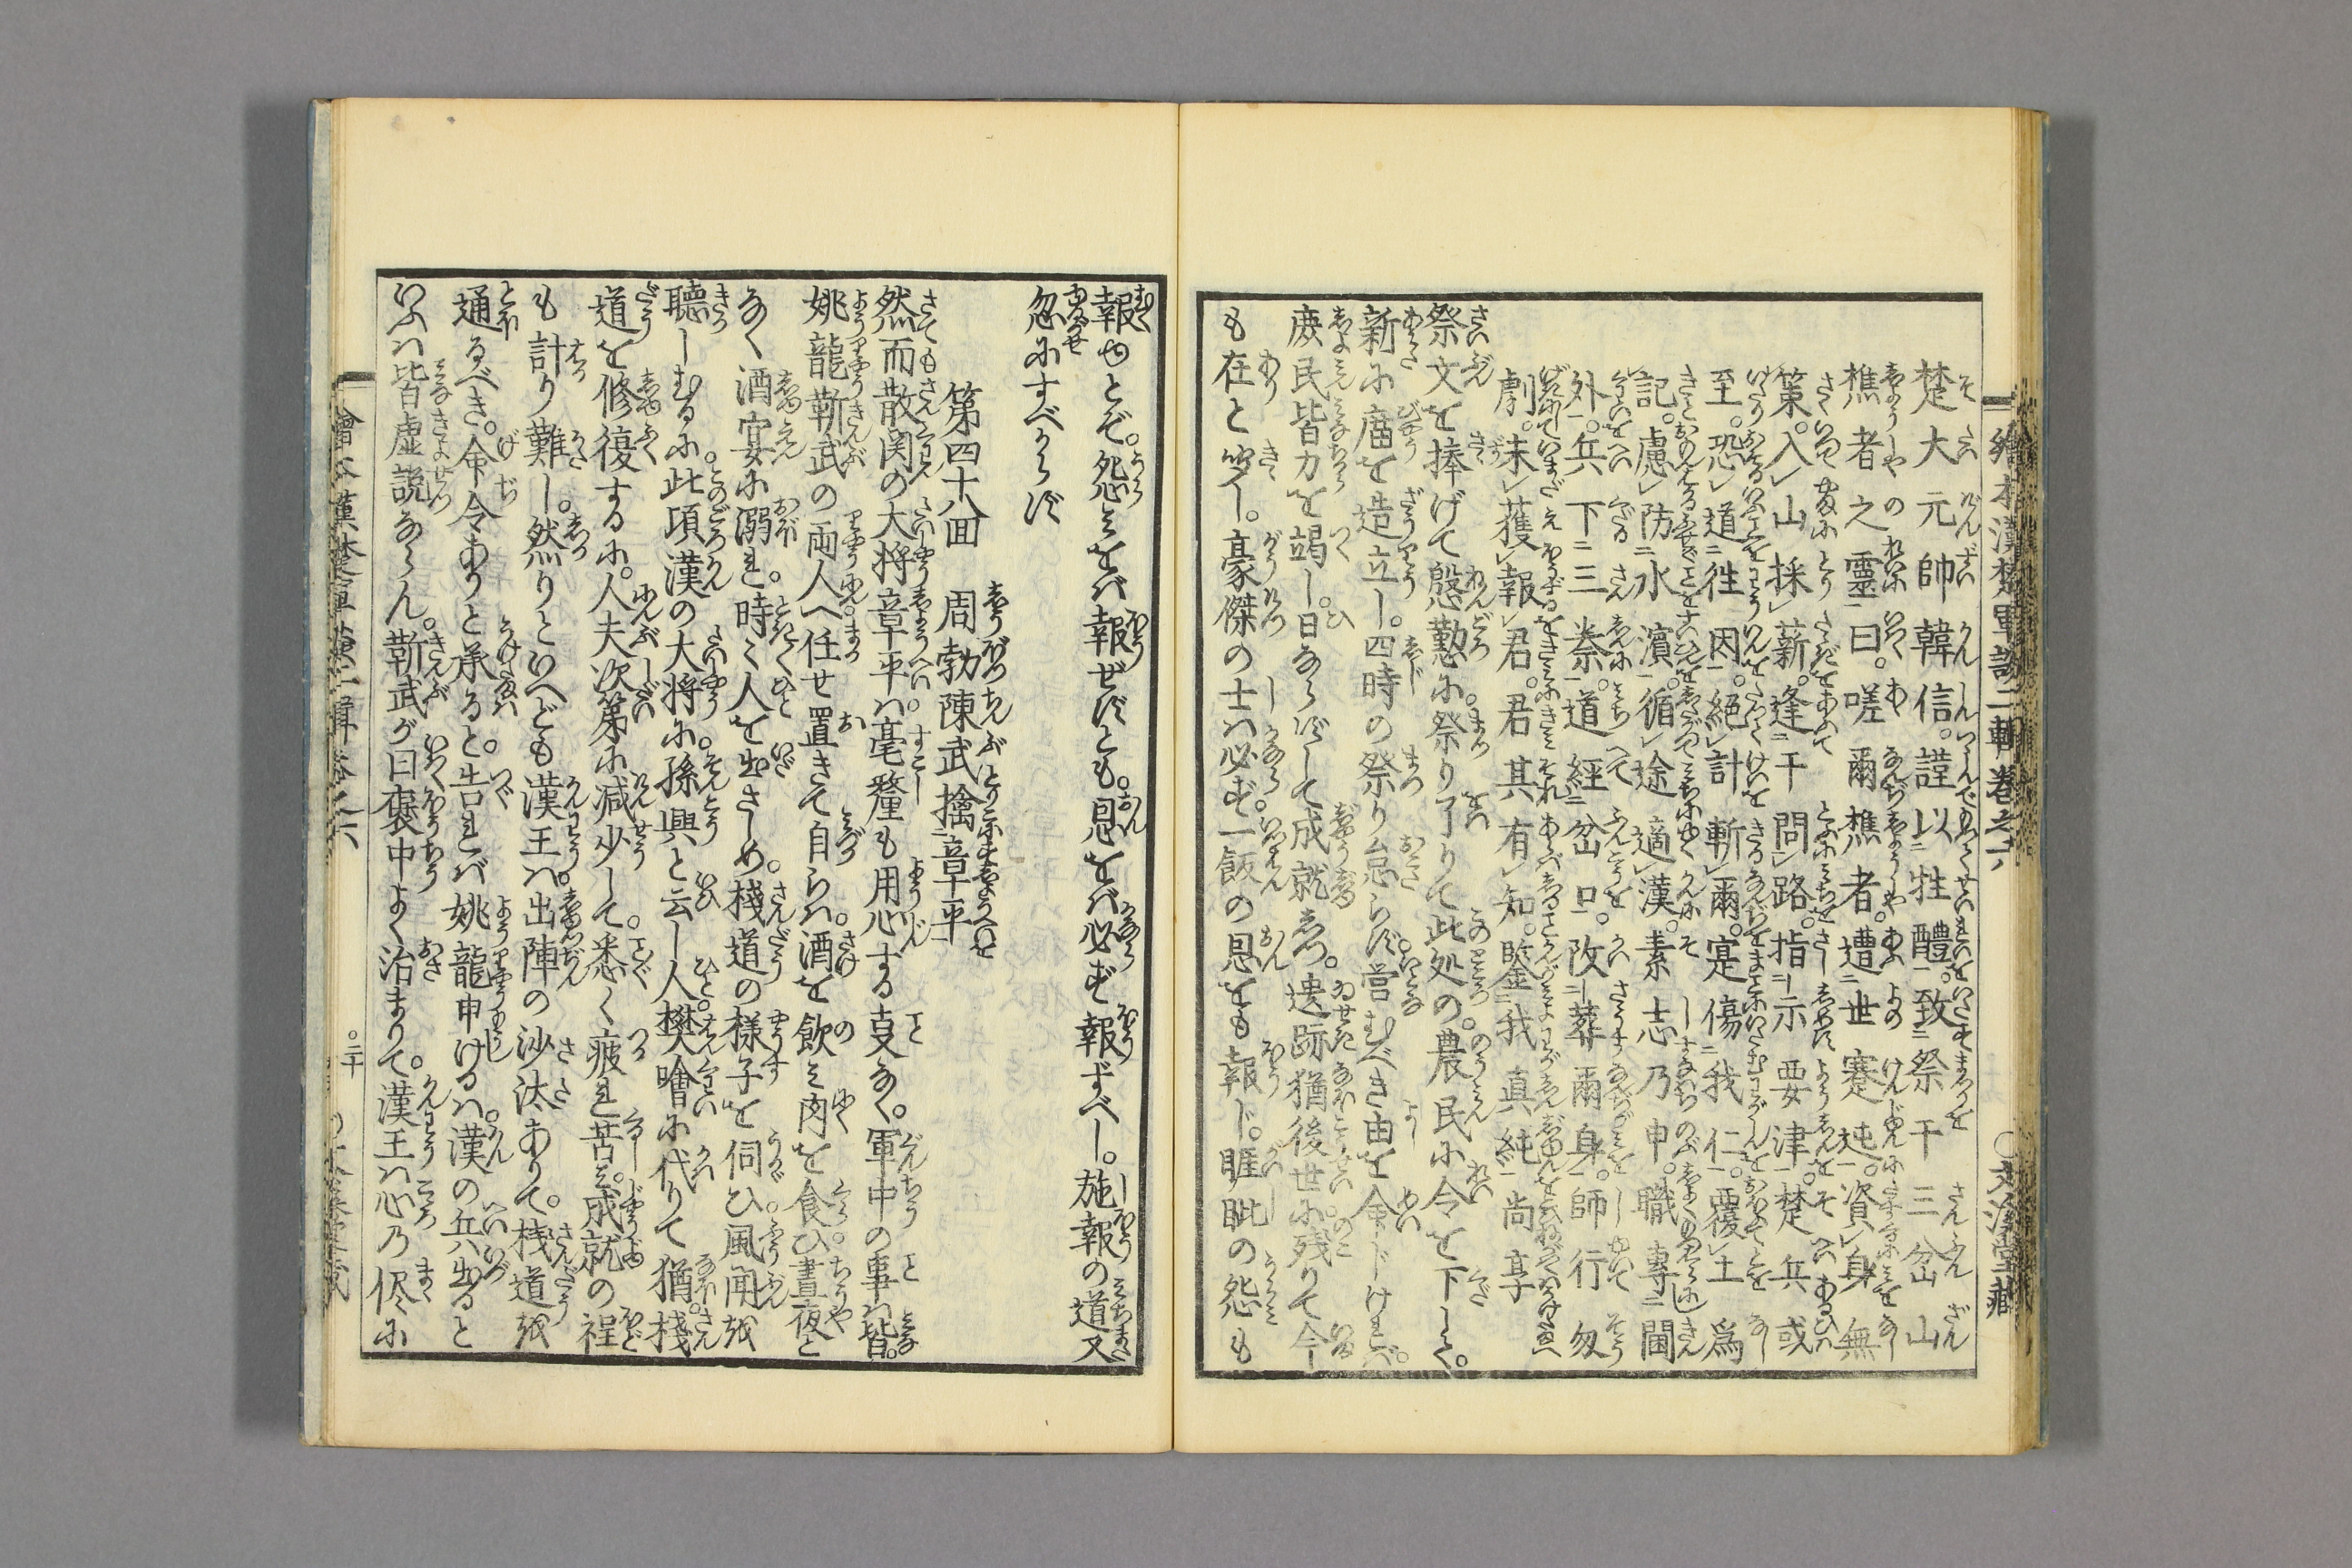 繪本漢楚軍談二輯卷之六 ○文溪堂藏
楚大元帥韓信。謹以牲醴。致祭于三岔山
樵者之靈曰。嗟爾樵者。遭世蹇迍。資身無
策。入山採薪。逢于問路。指示要津。楚兵或
至。恐道徃因。絕計斬爾。寔傷我仁。覆土爲
記。慮防水濱。循途適漢。素志乃申。職專閫
外。兵下三秦。道經岔口。改葬爾身。師行匆
劇。未獲報君。君其有知。鑒我真純。尚享
祭文を捧げて慇懃に祭り了りて此処の。農民に令を下して。
新に廟を造立し。四時の祭り怠らず営むべき由を命ドければ。
庶民皆力を竭し。日ならずして成就しつ。遺跡猶後世に残りて今
も在と聞し。豪傑の士は必ず一飯の恩をも報ド。睚眦の怨も
報ゆとぞ。怨みをば報ぜずとも。恩をば必ず報ずべし。施報の道又
忽にすべからず
第四十八回 周勃陳武擒章平
然而散関の大将章平は。毫釐も用心する叓なく。軍中の事は皆。
姚龍靳武の両人へ任せ置きて自らは。酒を飲み肉を食ひ晝夜と
なく酒宴に溺れ。時々人を出さしめ。棧道の様子を伺ひ風聞を
聽しむるに此項漢の大将に。孫興と云し人樊噲に代りて猶棧
道を修復するに。人夫次第に減少して。悉く疲れ苦み。成就の程
も計り難し。然りといへども漢王は。出陣の沙汰ありて。棧道を
通るべき。命令ありと承ると。告れば姚龍申けるは。漢の兵出ると
いふは皆虚説ならん。靳武が曰褒中よく治まりて。漢王は心乃侭に